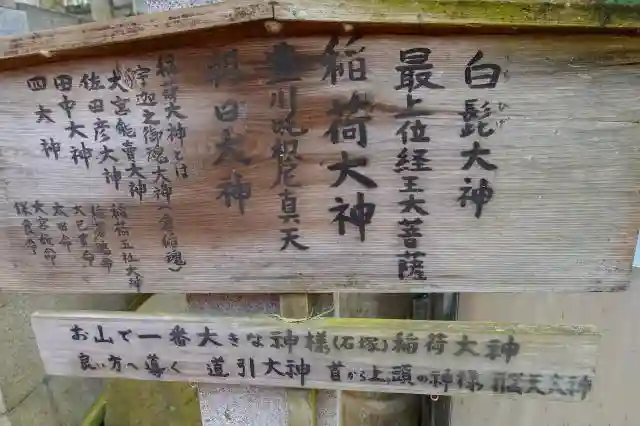 白髭大神
しらひげ
最上位経王大菩薩
稲荷大神
荼川吒枳尼真天
祖田大神
稲荷大神とは
宇迦之御魂大神(倉稲魂)
大宮能売大神 稲荷五社大神
佐田彦大神
田中大神 太田命
四大神 大宮姫命
保食命
お山で一番大きな神様(石塚)稲荷大神
良い方へ導く 道引大神 首から上、頭の神様 脳天大神